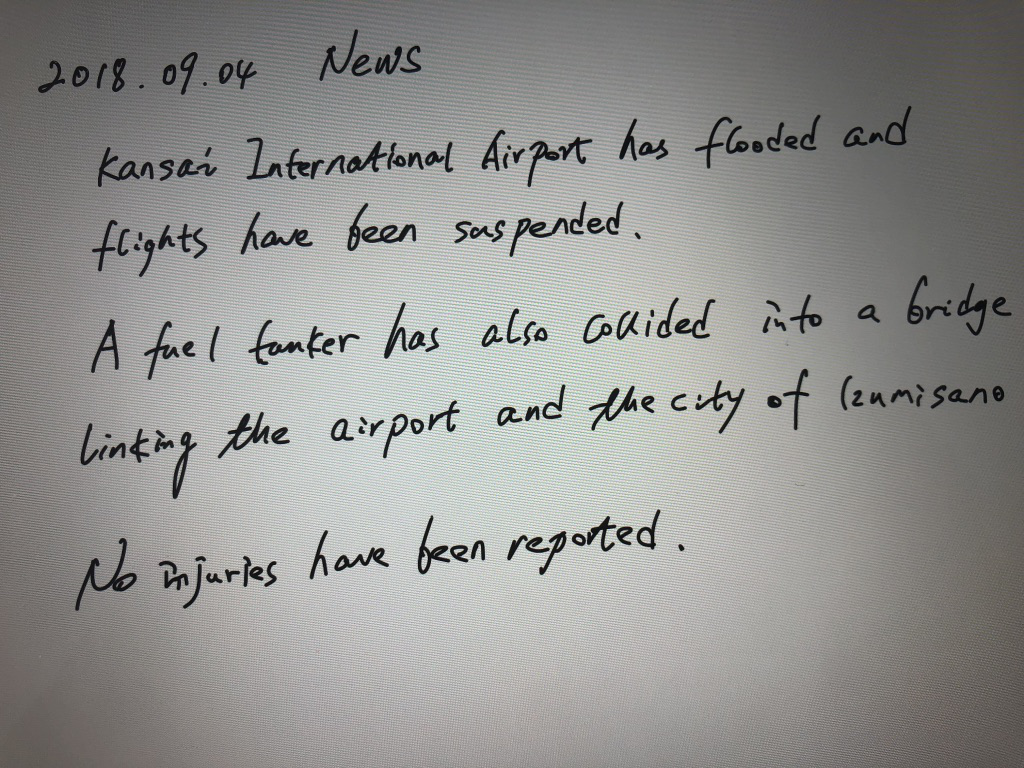 2018.09.04 News
Kansai International Airport has flooded and
flights have been suspended.
A fuel tanker has also collided into a bridge
linking the airport and the city of Izumisano
No injuries have been reported.